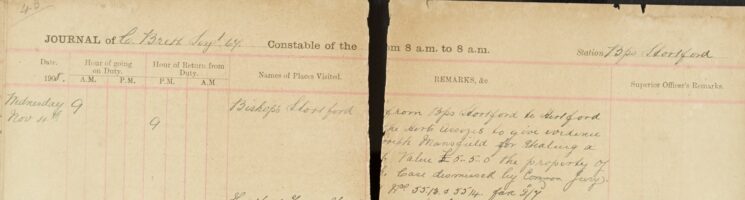 43
JOURNAL of C. Brett Sergt 67. Constable of the
from 8 a.m. to 8 a.m.
Station Bps Stortford
Date. 1908. Hour of going on Duty. A.M. P.M. Hour of Return from Duty. P.M. A.M. Names of Places Visited.
REMARKS, &c.
Superior Officer's Remarks.
Wednesday 9 Bishops Stortford
Nov 4th 9
from Bps Stortford to Hertford
Herts to give evidence
Mansfield for Stealing a
Value £5-5-0 the property of
Case dismissed by Common Jury.
5513 & 5514 for